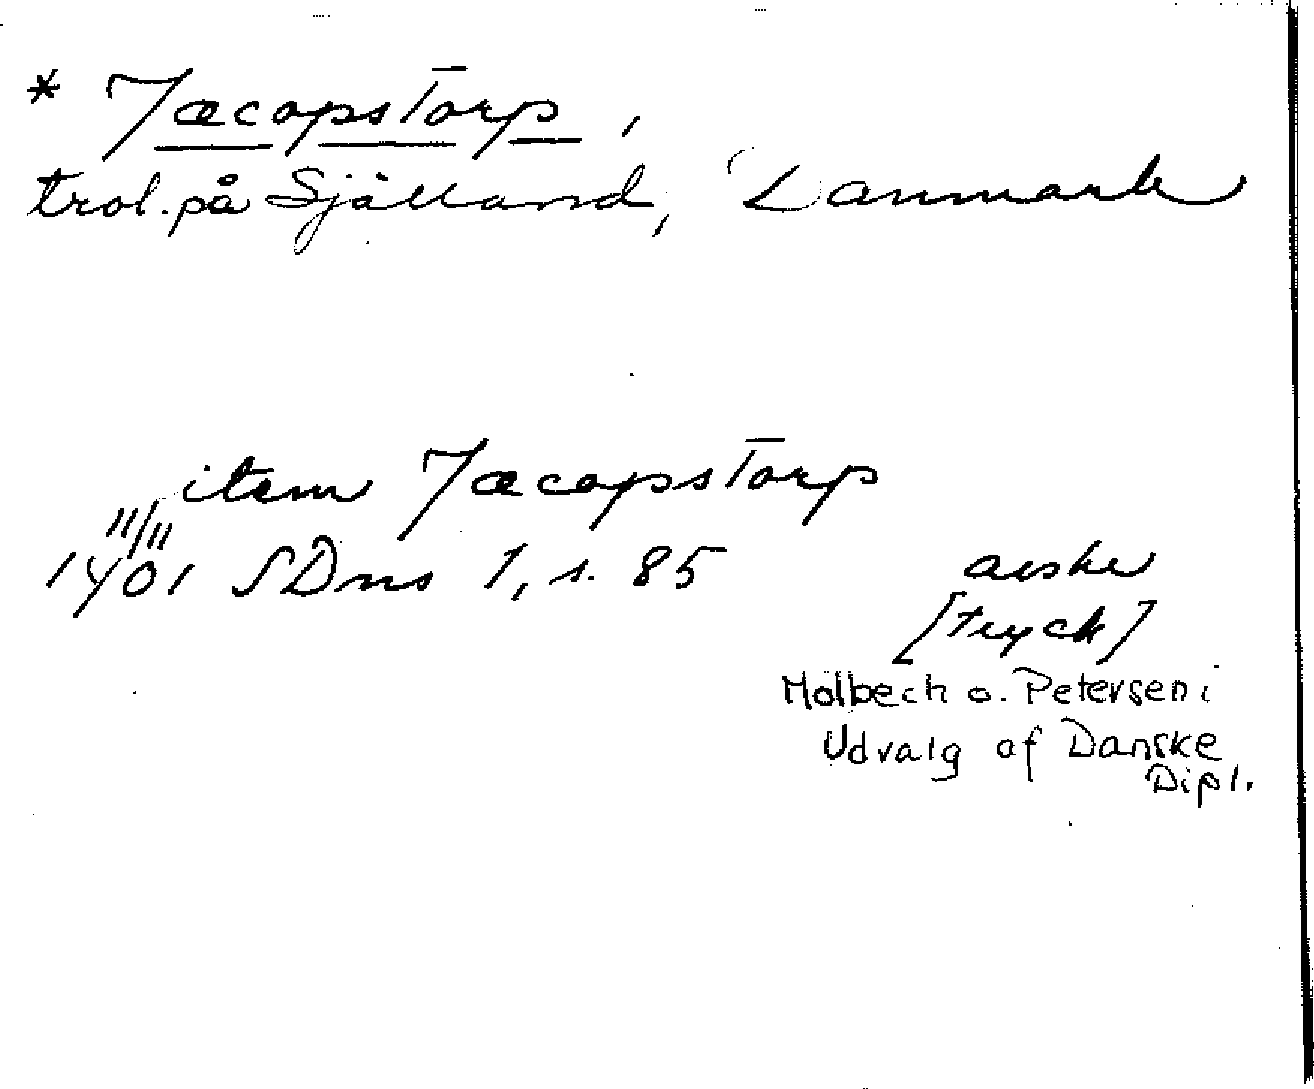 * Jæcopstorp,
trol. på Själland, Danmark
item Jæcopstorp
11/11
1401 SDns 1, s. 85
avskr
[tryck]
Molbech o. Petersen i
Udvalg af Danske
Dipl.